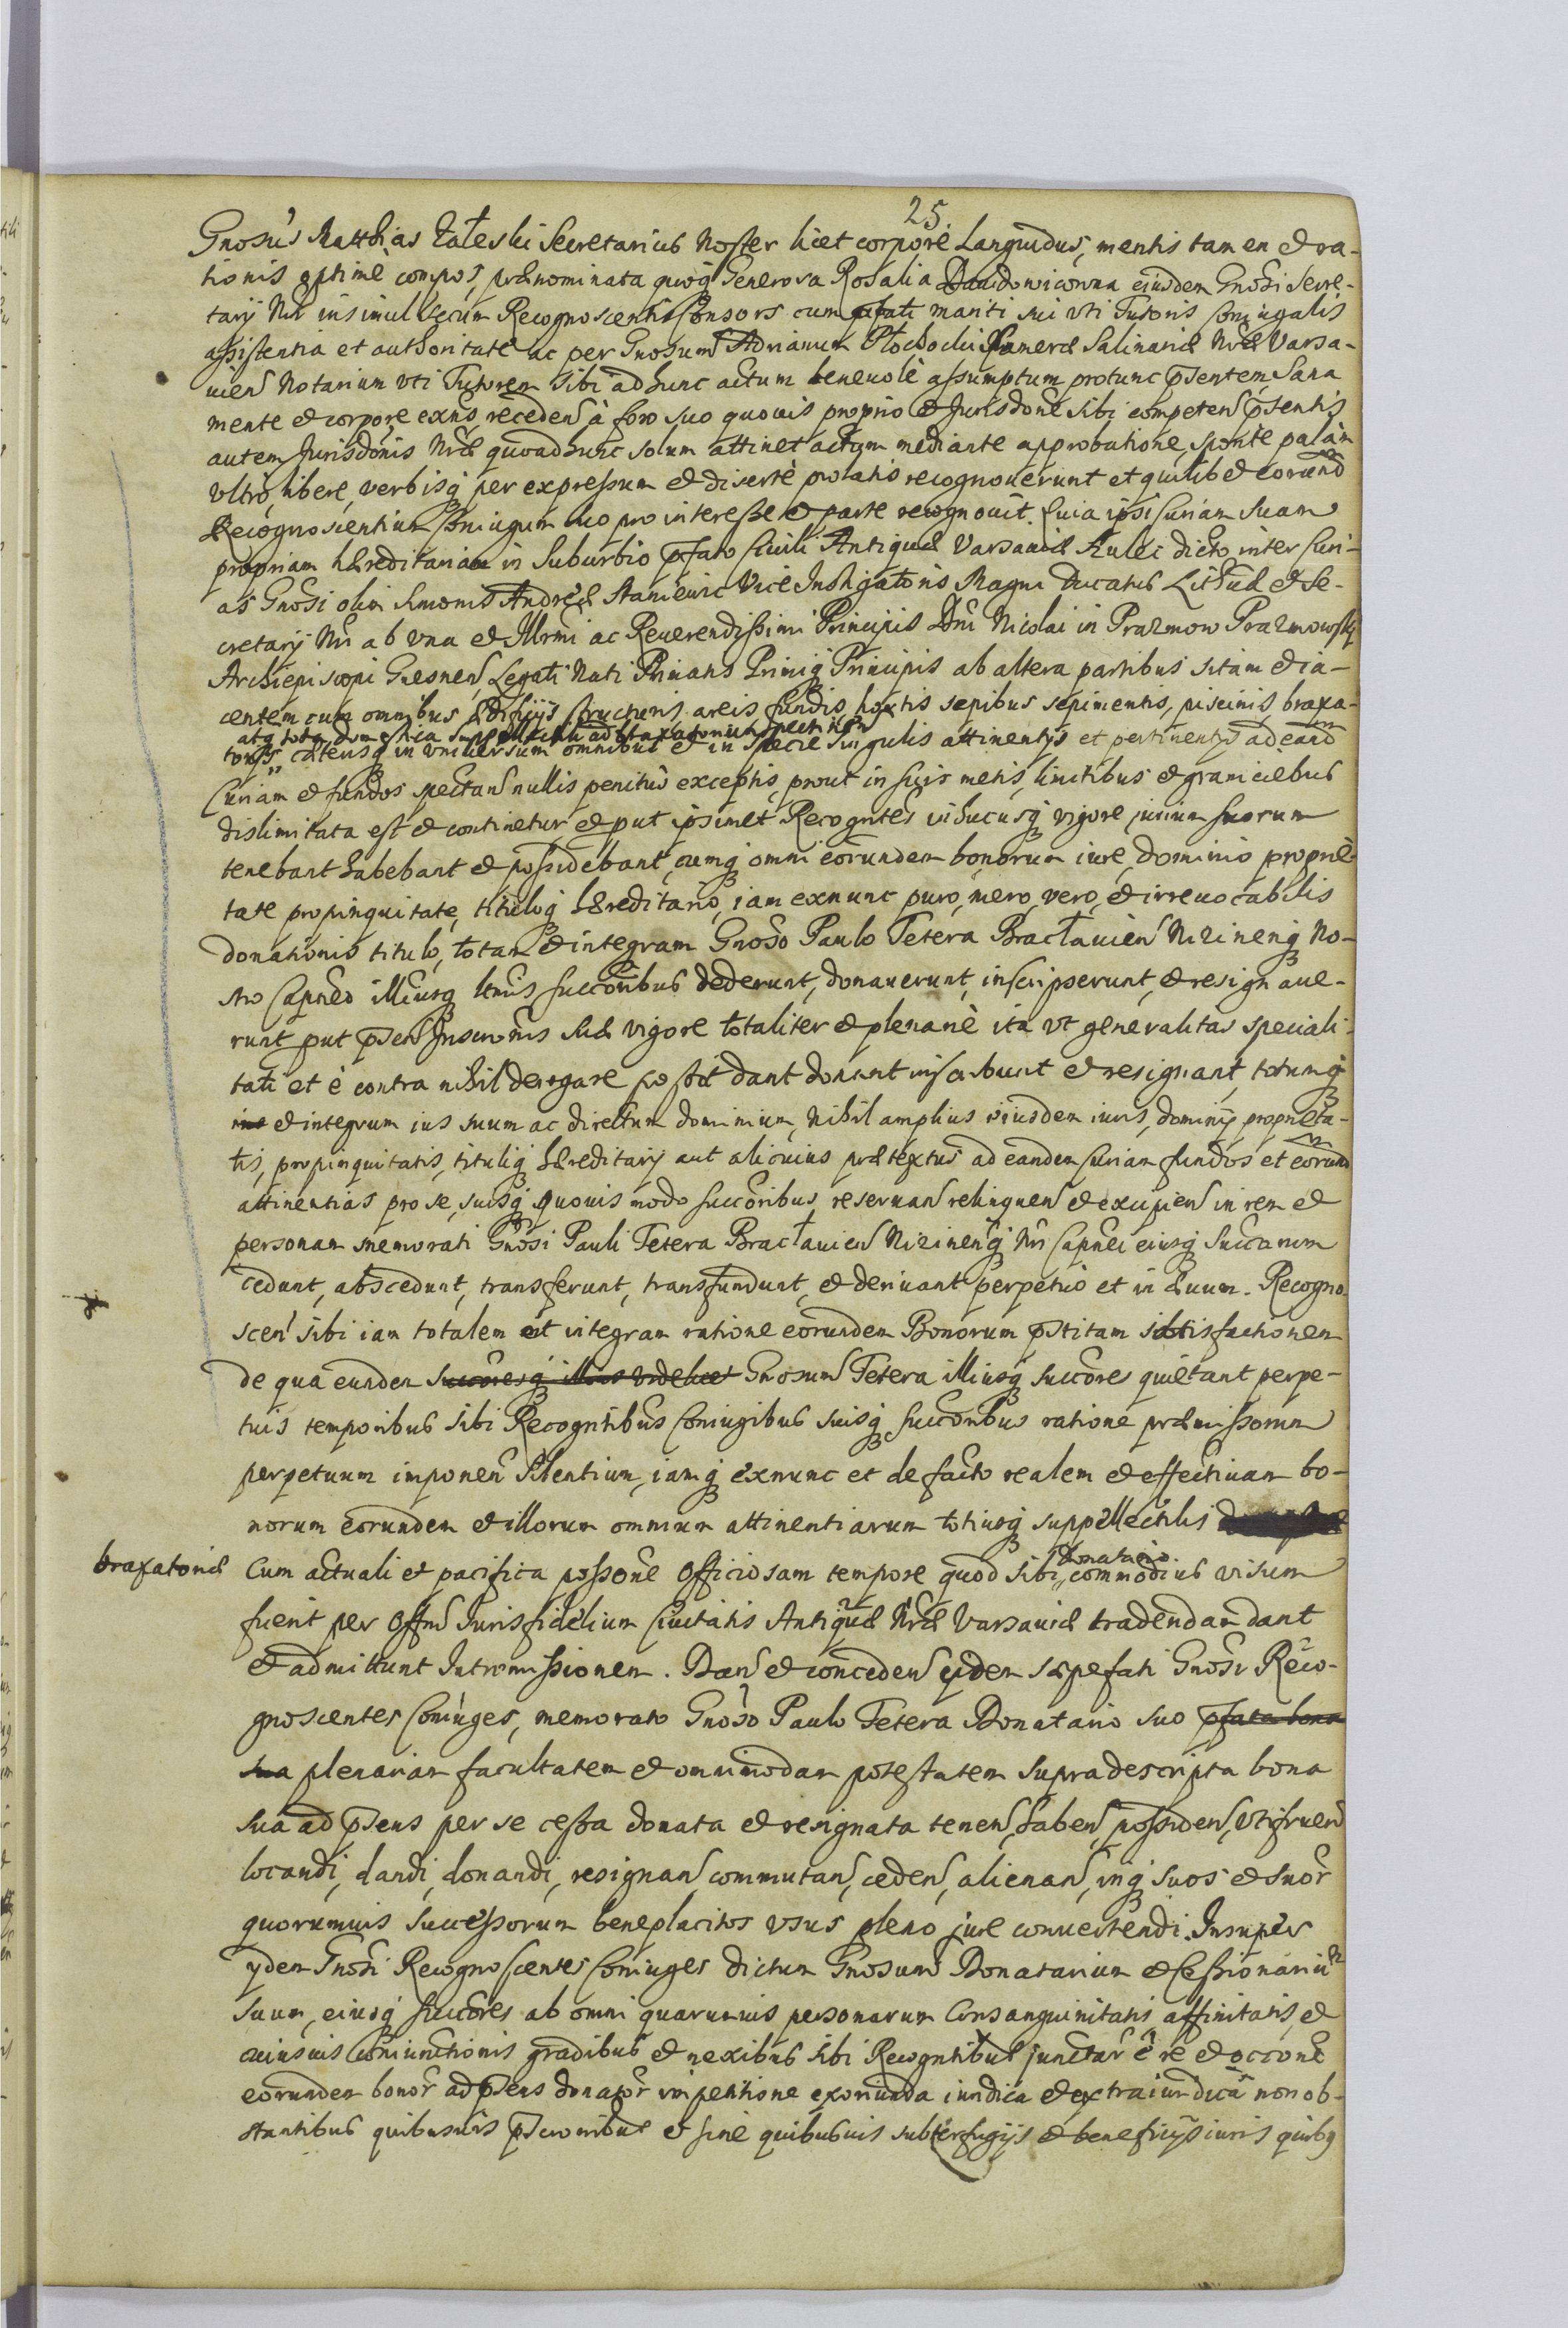 25.
Gnosus Matthias Zaleski Secretarius Noster licet corpore Languidus, mentis tamen et ra-
tionis optimè compos, prænominata quoq Generosa Rosalia Dawidowiczowna eiusdem Gnosi Secre-
tarÿ Nri insimul secum Recognoscentis Consors cum pfati mariti sui vti Tutoris Coniugalis
assistentia et authoritate ac per Gnosum Adrianum Płochocki Cameræ Salinariæ Nræ Varsa-
uien Notarium vti Tutorem sibi ad hunc actum beneuolè assumptum protunc pſentem, Sana
mente et corpore exñs, receden à foro suo quouis proprio et Jurisdone sibi competen pſentis
autem Jurisdonis Nræ quoad hunc solum attinet actum mediante approbatione, sponte palàm
vltro, libere, verbisq per expressum et disertè prolatis recognouerunt et quilibet eorund
Recognoscentium Coniugum suo pro interesse et parte recognouit. Quia ipsi Curiam Suam
propriam hæreditariam in Suburbio pfato Ciuili Antiquæ Varsauiæ Aulec dicto inter Curi-
as Gnosi olim Simonis Andreæ Staniewic Vice Instigatoris Magni Ducatus Lithuæ et Se-
cretarÿ Nri ab vna et Illrmi ac Reuerendissimi Principis Dni Nicolai in Prazmow Prazmowski
Archiepiscopi Gnesnen Legati Nati Primatis Primiq Principis ab altera partibus sitam et ia-
centem cum omnibus ædificÿs structuris, areis, fundis, hortis sepibus sepimentis, piscinis, braxa-
atq tota domestica suppellectili ad braxatorium spectaũ
torÿs cæterisq in vniuersum omnibus et in specie singulis attinentÿs et pertinentÿs ad eand
Curiam et fundos spectan nullis penitùs exceptis, prout in suis metis, limitibus et graniciebus
dislimitata est et continetur et put ipsimet Recogntes vihucusq vigore jurium suorum
tenebant habebant et possidebant, cumq omni eorundem bonorum iure, dominio proprie-
tate propinquitate, tituloq hæreditario, iam exnunc puro, mero, vero, et irreuocabilis
donationis titulo, totam et integram Gnoso Paulo Tetera Bracłauien Nizinenq No-
stro Capneo illiusq ltmis succoribus dederunt, donauerunt, inscripserunt, et resignaue-
runt put pſen Inscronis suæ vigore totaliter et plenariè ita vt generalitas speciali-
tati et è contra nihil derogare possit dant donant inscribunt et resignant, totumq
ius et integrum ius suum ac directum dominium, nihil amplius eiusdem iuris, dominÿ proprieta-
tis, propinquitatis, tituliq hæreditarÿ aut alicuius prætextus ad eandem Curiam fundos et eorund
attinentias pro se, suisq quouis modo succoribus reseruan relinquen et excipien in rem et
personam memorati Gnosi Pauli Tetera Bracłauien Nizinenq Nri Capnei eiusq Succorum
cedunt, abscedunt, transferunt, transfundunt, et deriuant perpetuò et in æuum. Recogno-
scen sibi iam totalem et integram ratione eorundem Bonorum pstitam satisfactionem
de qua eundem succoresq illius videlicet Gnosum Tetera illiusq succores quietant perpe-
tuis temporibus sibi Recogntibus Coniugibus suisq succoribus ratione præmissorum
perpetuum imponen Silentium, iamq exnunc et de facto realem et effectiuam bo-
norum eorundem et illorum omnium attinentiarum totiusq suppellectilis
braxatoriæ Cum actuali et pacifica possone Officiosam tempore quod sibi donatario commodius visum
fuerit per Offm Jurisfidelium Ciuitatis Antiquæ Nræ Varsauiæ tradendam dant
et admittunt Intromissionem. Dan et conceden ÿdem sæpefati Gnosi Reco-
gnoscentes Coniuges, memorato Gnoso Paulo Tetera Donatario suo pfata bona
sua plenariam facultatem et omnimodam potestatem supradescripta bona
sua ad pſens per se cessa donata et resignata tenen, haben, possiden, vtifruen
locandi, dandi, donandi, resignan, commutan, ceden, alienan, inq suos et suor
quorumuis successorum beneplacitos vsus pleno jure conuertendi. Insuper
ÿdem Gnosi Recognoscentes Coniuges dictum Gnosum Donatarium et Cessionariu
suum, eiusq succores ab omni quarumuis personarum Consanguinitatis affinitatis, et
cuiusuis Coniunctionis gradibus et nexibus sibi Recogntibus junctar è re et occone
eorundem bonor ad pſens donator impetitione exoriunda iuridica et extraiuridica non ob-
stantibus quibusuis pſcronibus et sine quibusuis subterfugÿs et beneficÿs iuris quibq